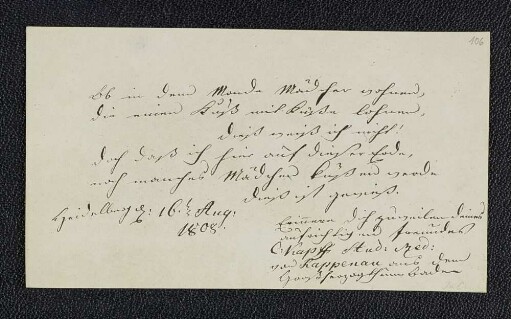 106
Ob in dem Monde Mädcher wohnen,
die einen Kuß mit Küße lohnen,
dieß weiß ich nicht!
doch daß ich hier auf dieser Erde,
noch manches Mädchen küßen werde
dieß ist gewiß.
Heidelberg d: 16t Aug:
1808.
Erinnere dich zuweilen deines
aufrichtigen Freundes
Stud: Med:
von Rappenau aus dem
Großherzogthum Baden